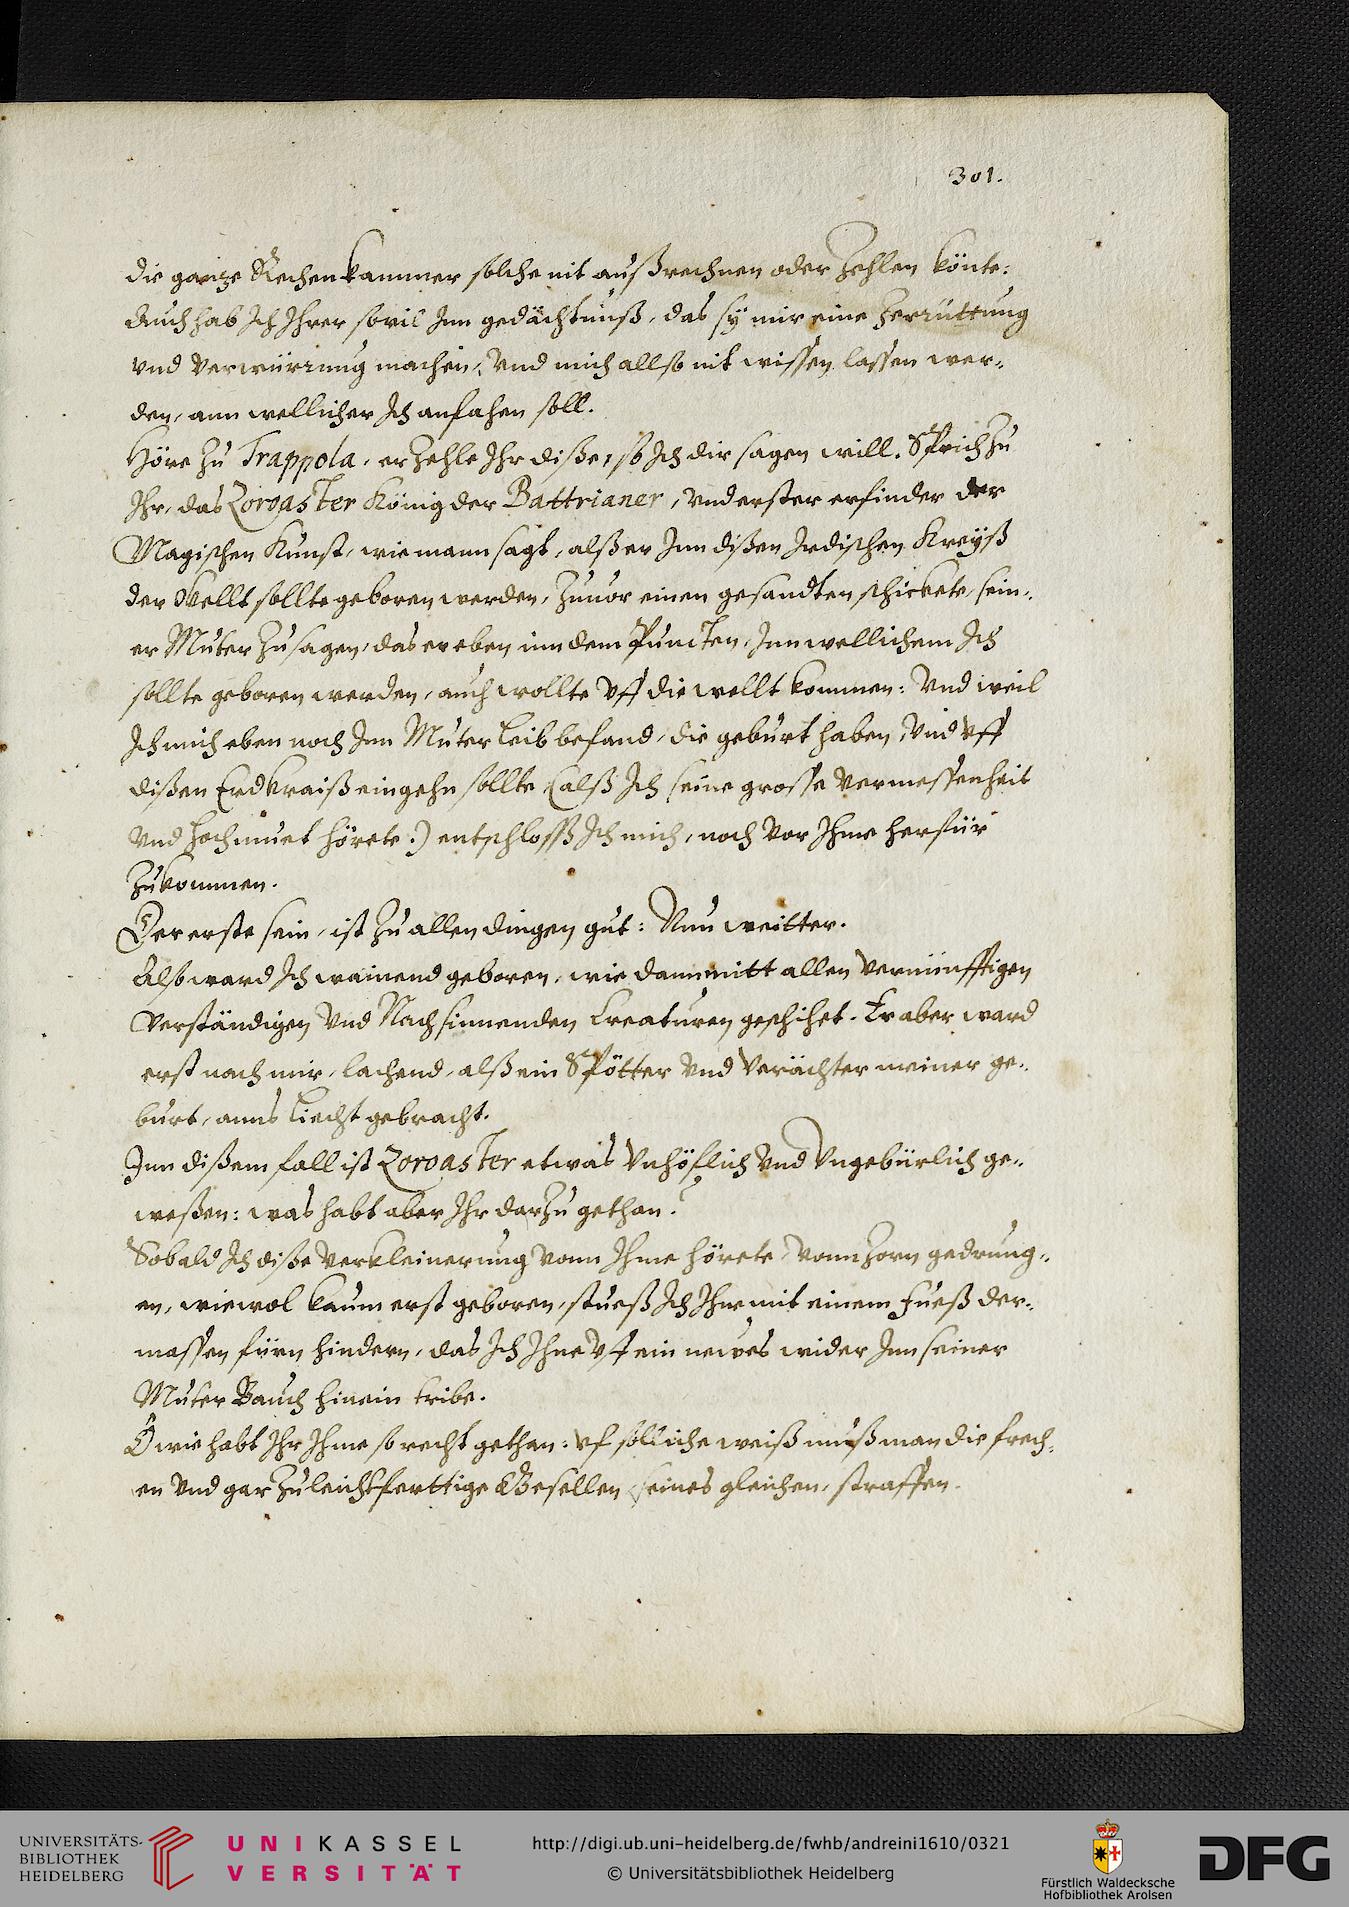 301.
die gantze Rechenkammer solche nit außrechnen oder Zehlen könte:
Auch hab Ich Ihrer sovil Inn gedächtnuß, das sÿ mir eine Zerrüttung
vnd Verwürrung machen, Vnd mich allso nit wissen lassen wer-
den, ann wellicher Ich anfahen soll.
Höre Zu Trappola, erZehle Ihr diße, so Ich dir sagen will. Sprich Zu
Ihr, das Zoroaster König der Battrianer, vnd erster erfinder der
Magischen Kunst, wie mann sagt, alß er Inn dißen Irdischen Kreÿß
der Wellt sollte geboren werden, Zuuor einen gesandten schickete, sein-
er Muter Zusagen, das er eben inn dem Puncten, Inn wellichem Ich
sollte geboren werden, auch wollte vff die wellt kommen: Vnd weil
Ich mich eben noch Inn Muter Leib befand, die geburt haben, Vnd vff
dißen Erdkraiß eingehn sollte (alß Ich seine grosse Vermessenheit
vnd Hochmuet hörete:) entschlosß Ich mich, noch Vor Ihme herfür
Zukommen.
Der erste sein, ist Zu allen dingen gut: Nun weitter.
Also ward Ich wainend geboren, wie dann mitt allen Vernünfftigen
Verständigen Vnd Nachsinnenden Creaturen geschihet. Er aber ward
erst nach mir, lachend, alß ein Spötter Vnd Verächter meiner ge-
burt, anns Liecht gebracht.
Inn dißem fall ist Zoroaster etwas Vnhöflich Vnd Vngebürlich ge-
weßen: was habt aber Ihr darZu gethan?
Sobald Ich diße Verkleinerung Vonn Ihme hörete, Vonn Zorn gedrung-
en, wiewol kaum erst geboren, stueß Ich Ihne mit einem Fueß der-
massen fürn hindern, das Ich Ihne vff ein newes wider Inn seiner
Muter Bauch hinein tribe.
O wie habt Ihr Ihme so recht gethan: vf solliche weiß muß man die frech-
en Vnd gar Zu leichtferttige Gesellen seines gleichen, straffen.
UNIVERSITÄTS-
BIBLIOTHEK
HEIDELBERG
UNIKASSEL
VERSITÄT
http://digi.ub.uni-heidelberg.de/fwhb/andreini1610/0321
© Universitätsbibliothek Heidelberg
Fürstlich Waldecksche
Hofbibliothek Arolsen
DFG